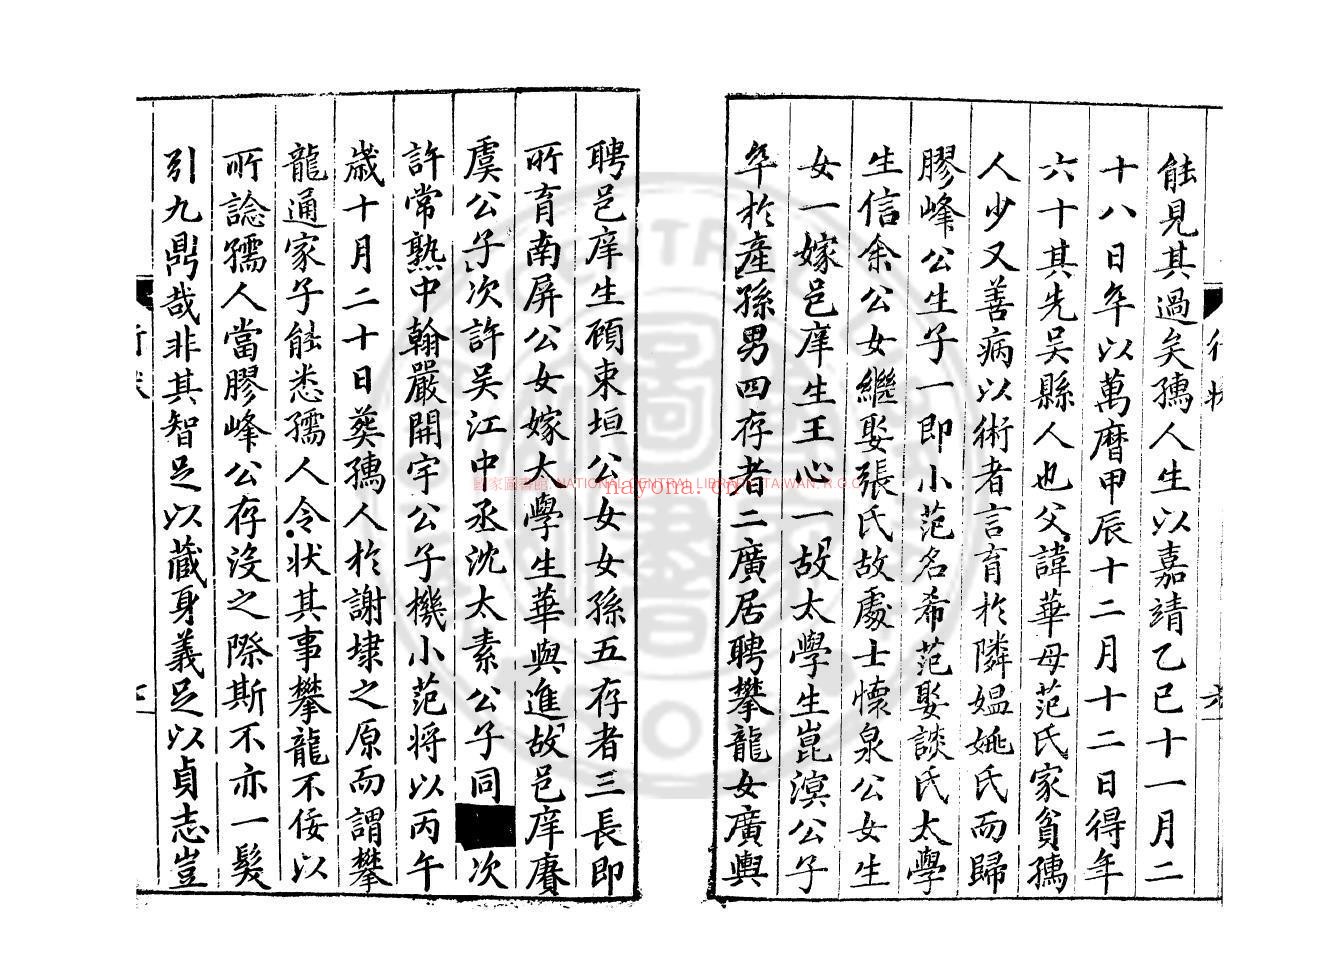 行狀
能見其過矣孺人生以嘉靖乙巳十一月二
十八日卒以萬曆甲辰十二月十二日得年
六十其先吳縣人也父諱華母范氏家貧孺
人少又善病以術者言育於隣媼姚氏而歸
膠峰公生子一即小范名希范娶談氏太學
生信余公女繼娶張氏故處士懷泉公女生
女一嫁邑庠生王心一故太學生崑溟公子
卒於產孫男四存者二廣居聘攀龍女廣輿
聘邑庠生顧東垣公女女孫五存者三長即
所育南屏公女嫁太學生華與進故邑庠賡
虞公子次許吳江中丞沈太素公子同■次
許常熟中翰嚴開宇公子機小范將以丙午
歲十月二十日葬孺人於謝埭之原而謂攀
龍通家子能悉孺人令狀其事攀龍不佞以
所諗孺人當膠峰公存沒之際斯不亦一髮
引九鼎哉非其智足以藏身義足以貞志豈
國家圖書館 NATIONAL CENTRAL LIBRARY, TAIWAN. R.O.C
nayona.cn